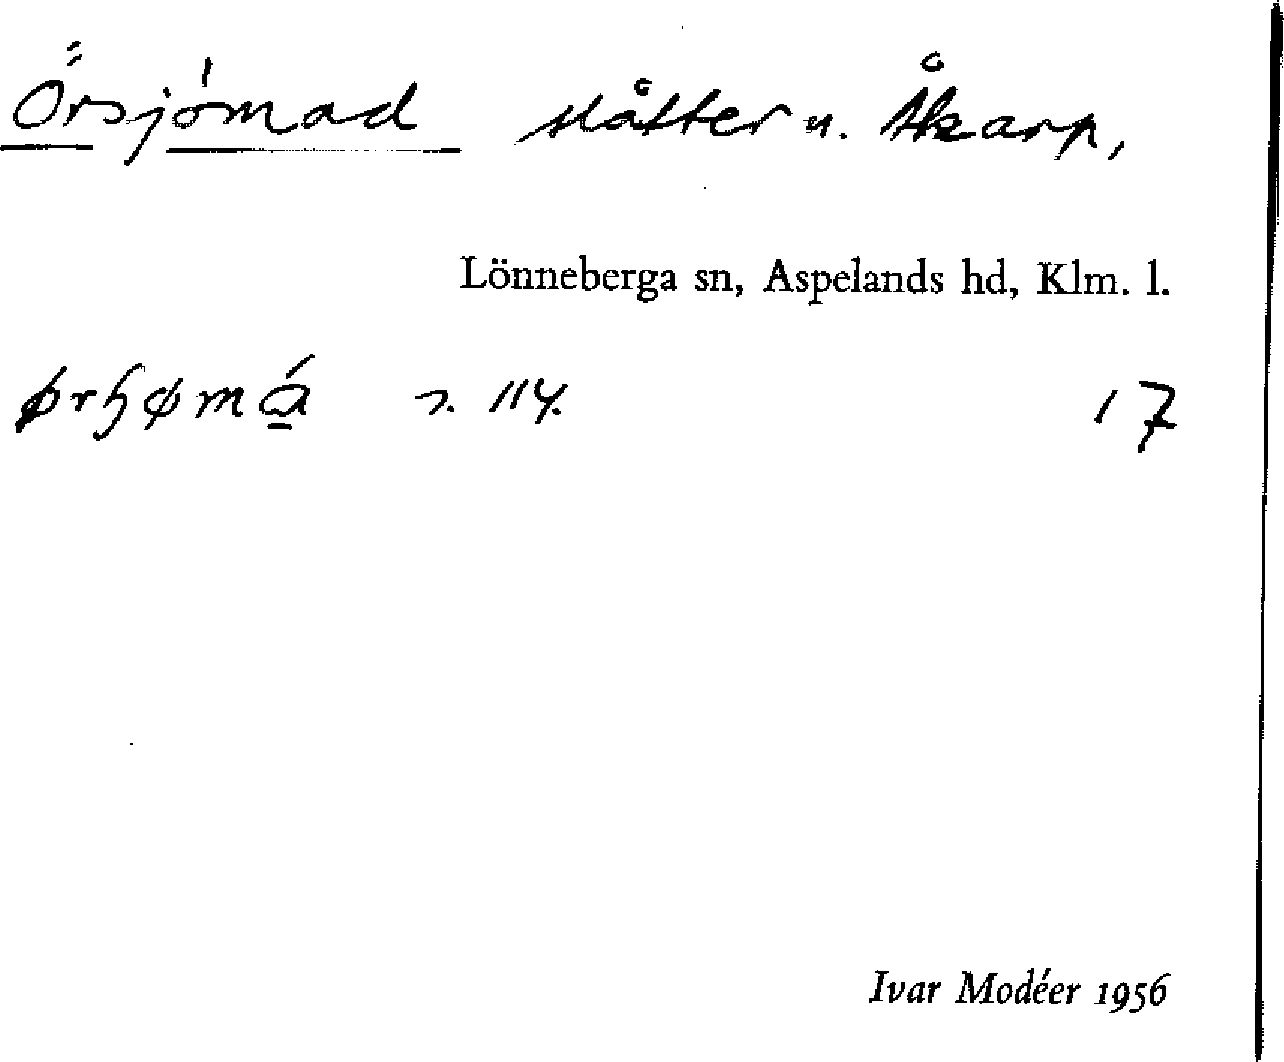 Örsjömad slåtter u. Åkarp,
Lönneberga sn, Aspelands hd, Klm. l.
114. 17
Ivar Modéer 1956